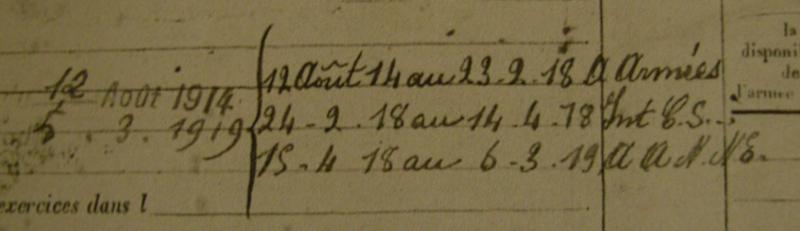 12 Août 14 au 23.2.18 A Armées
12 Août 1914
24-2.18 au 14.4.18 Int C.S.
5.3.1919
15-4 18 au 6-3.19 A A N. NE.
exercices dans l
la
disponi
de
l'armée